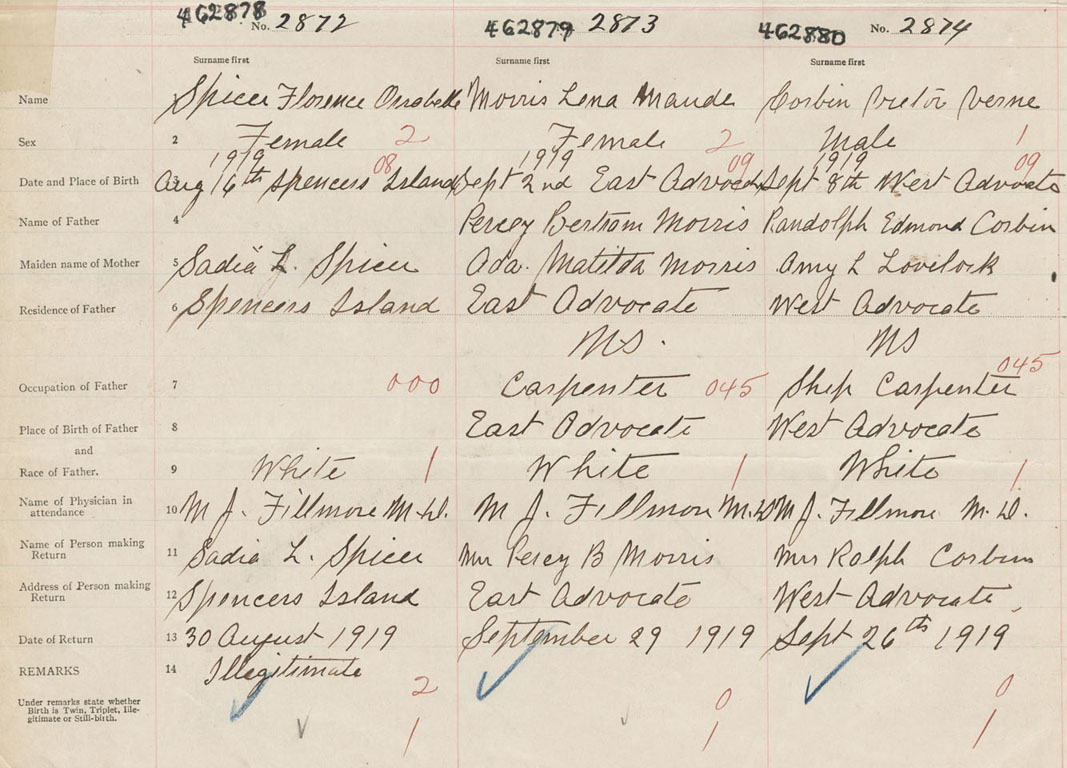 462878 No. 2872 462879 2873 462880 No. 2874
Surname first Surname first Surname first
Name 1 Spicer Florence Morris Lena Maude Corbin Victor Verne
Sex 2 Female 2 Female 2 Male 1
1919 08 1919 09 1919 09
Date and Place of Birth 3 Aug 16th Spencers Island Sept 2nd East Advocate Sept 8th West Advocate
Name of Father 4 Percey Bertram Morris Randolph Edmond Corbin
Maiden name of Mother 5 Sadia L. Spicer Ada. Matilda Morris Amy L Lovelock
Residence of Father 6 Spencers Island East Advocate West Advocate
NS. NS
Occupation of Father 7 000 Carpenter 045 Ship Carpenter 045
Place of Birth of Father 8 East Advocate West Advocate
and
Race of Father. 9 White 1 White 1 White 1
Name of Physician in attendance 10 M J. Fillmore M.D. M J. Fillmore M.D M J. Fillmore M.D.
Name of Person making Return 11 Sadia L. Spicer Mrs Percey B Morris Mrs Ralph Corbin
Address of Person making Return 12 Spencers Island East Advocate West Advocate
Date of Return 13 30 August 1919 September 29 1919 Sept 26th 1919
REMARKS 14 Illegitimate
Under remarks state whether
Birth is Twin, Triplet, Ille-
gitimate or Still-birth.
2 0 0
1 1 1